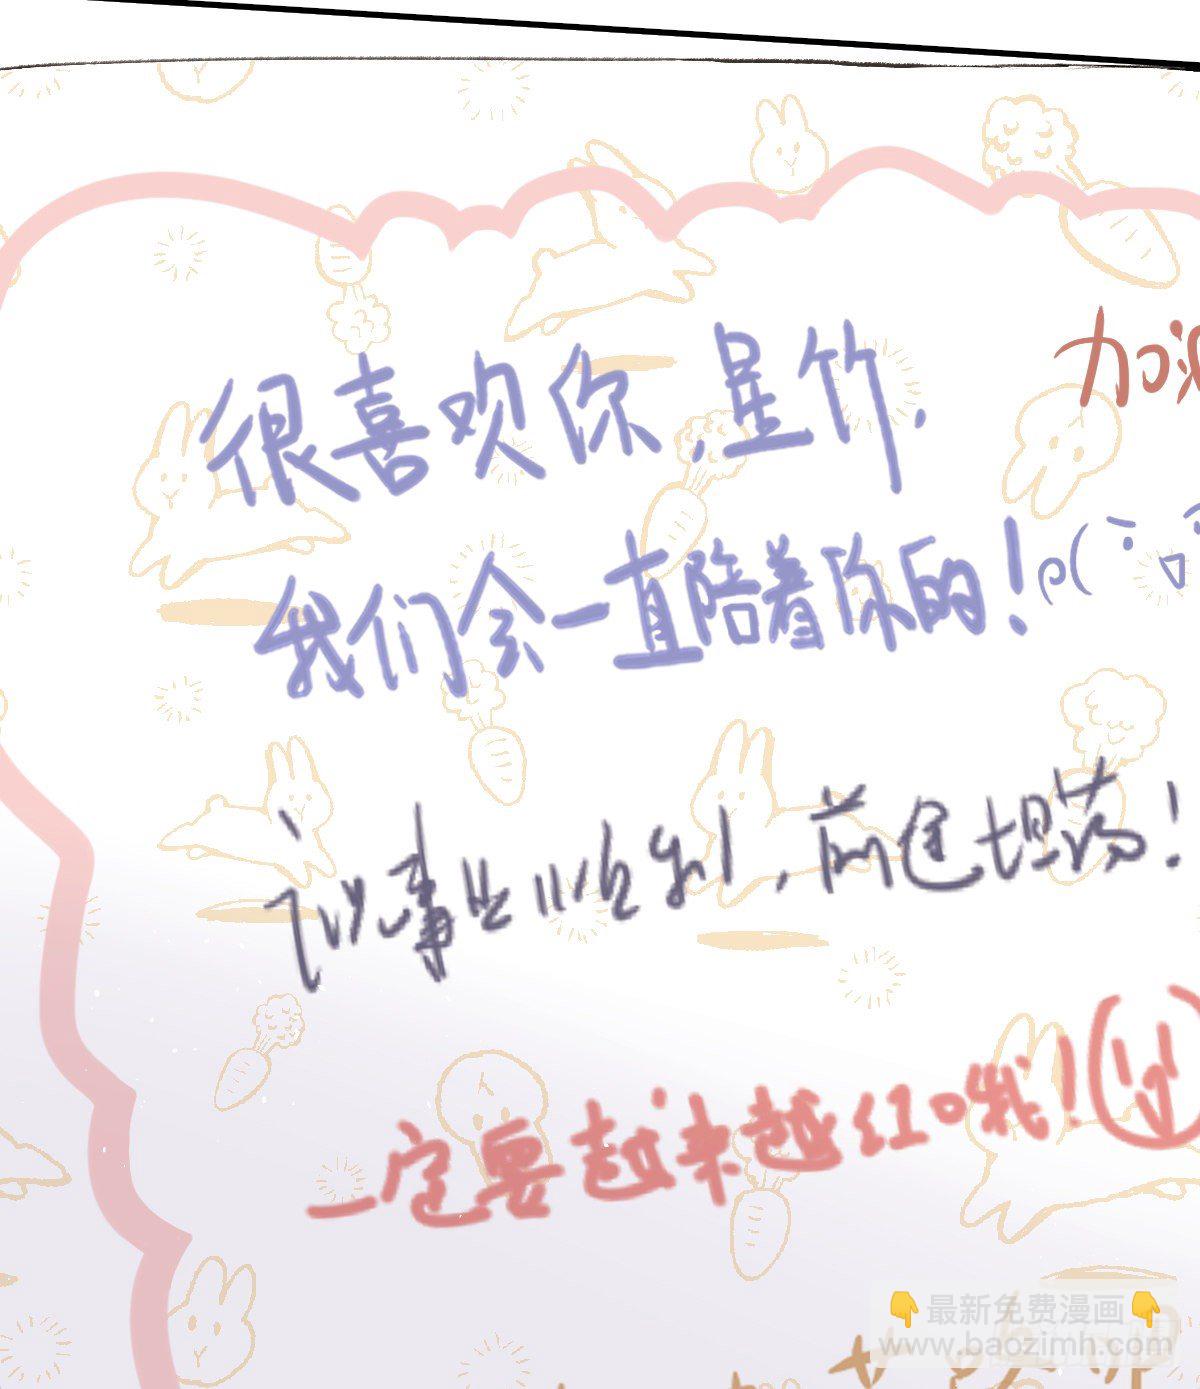 很喜欢你,星竹.
加油
我们会一直陪着你的!
祝事业顺利,前途坦荡!
一定要越来越红哦!
👇最新免费漫画👇
www.baozimh.com